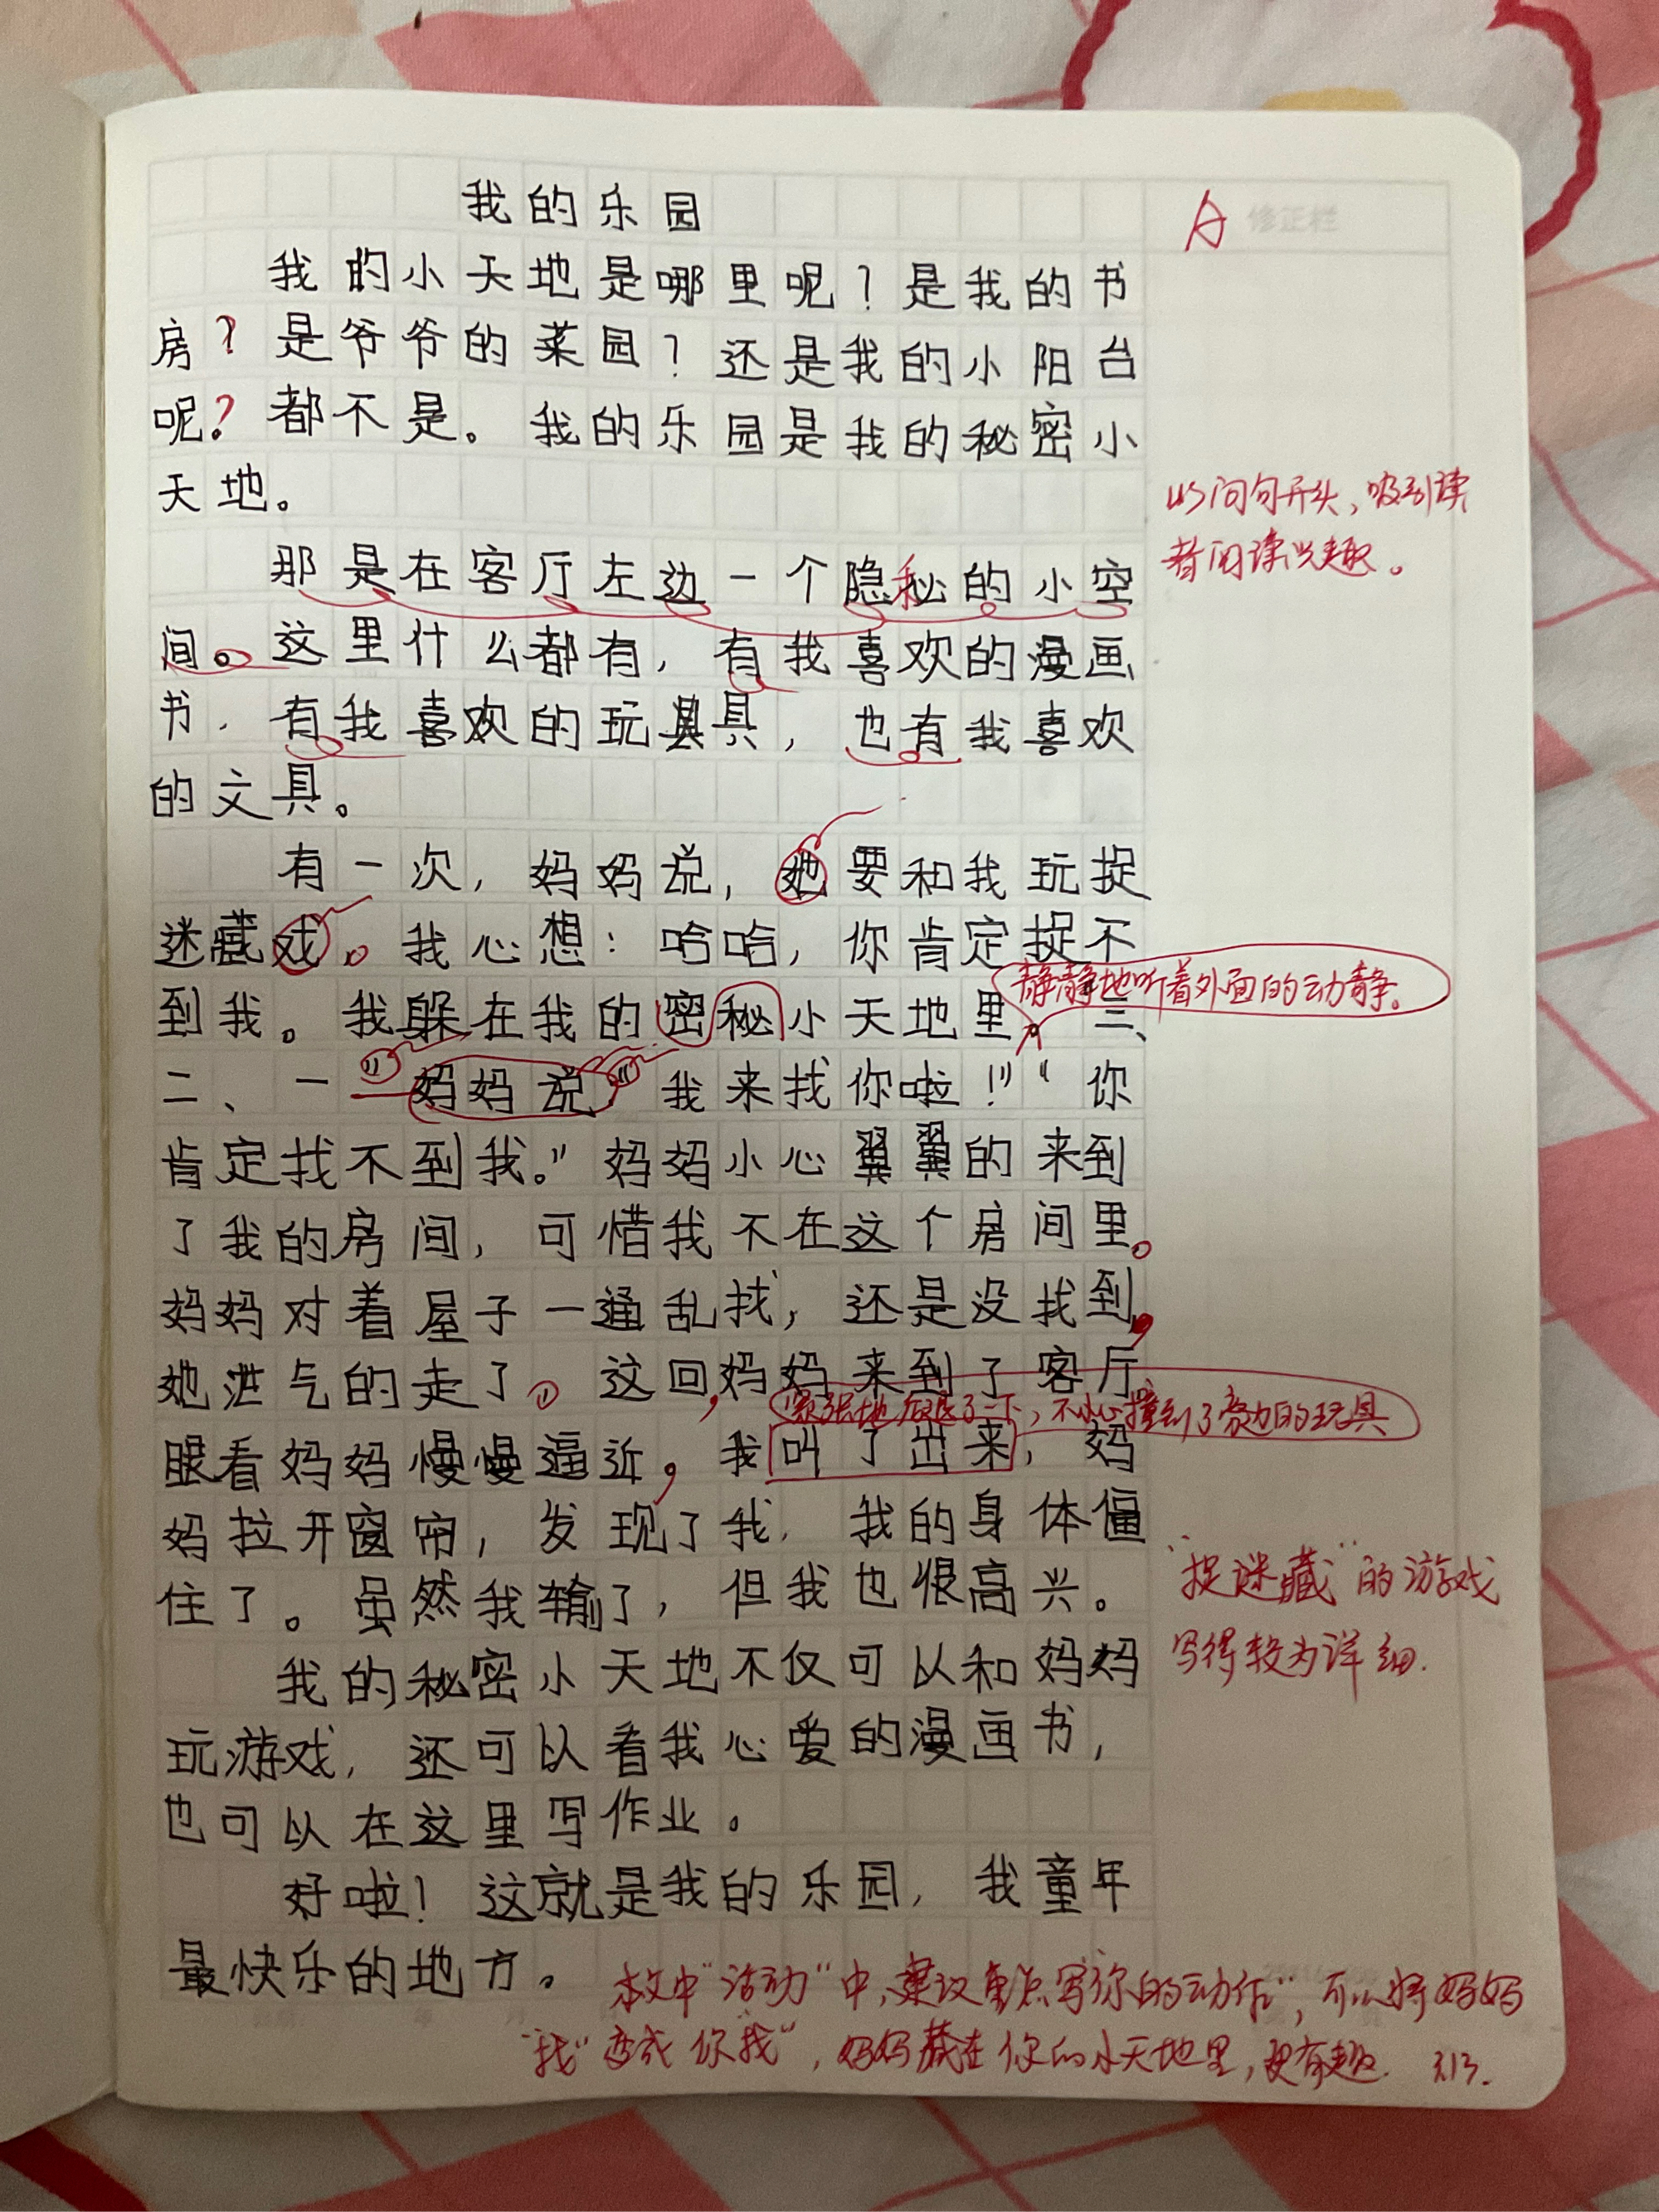 我的乐园
A 修正栏
我的小天地是哪里呢？是我的书
房？是爷爷的菜园？还是我的小阳台
呢？都不是。我的乐园是我的秘密小
天地。
以问句开头、吸引读
者阅读兴趣。
那是在客厅左边一个隐秘的小空
间。这里什么都有，有我喜欢的漫画
书，有我喜欢的玩具，也有我喜欢
的文具。
有一次，妈妈说，她要和我玩捉
迷藏戏。我心想：哈哈，你肯定捉不
静静地听着外面的动静。
到我。我躲在我的密秘小天地里。三、
二、一”妈妈说“我来找你啦！”“你
肯定找不到我。”妈妈小心翼翼的来到
了我的房间，可惜我不在这个房间里。
妈妈对着屋子一通乱找，还是没找到，
她泄气的走了。这回，妈妈来到了客厅
紧张地后退了一下，不小心撞到了旁边的玩具
眼看妈妈慢慢逼近，我叫了出来，妈
妈拉开窗帘，发现了我，我的身体僵
住了。虽然我输了，但我也很高兴。
“捉迷藏”的游戏
写得较为详细.
我的秘密小天地不仅可以和妈妈
玩游戏，还可以看我心爱的漫画书，
也可以在这里写作业。
好啦！这就是我的乐园，我童年
最快乐的地方。
本文中“活动”中，建议重点写你的动作“，可以将妈妈
“找”变成你找”，妈妈藏在你的小天地里，更有趣.